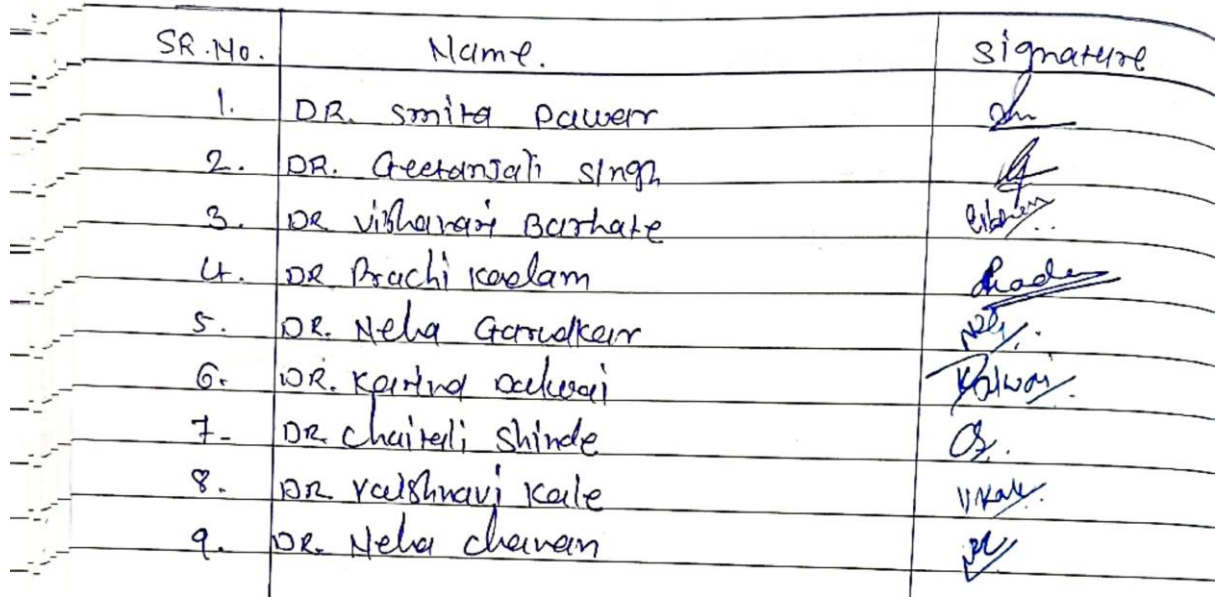 SR.No. Name. Signature
1. DR. Smita Pawar
2. DR. Geetanjali Singh
3. DR Vibhavari Barhate
4. DR Prachi Kadam
5. DR. Neha Garudkar
6. DR. Karina Dalwai Dalwai
7- DR. Chaitali Shinde
8. DR Vaishnavi Kale VKale
9. DR. Neha Chavan